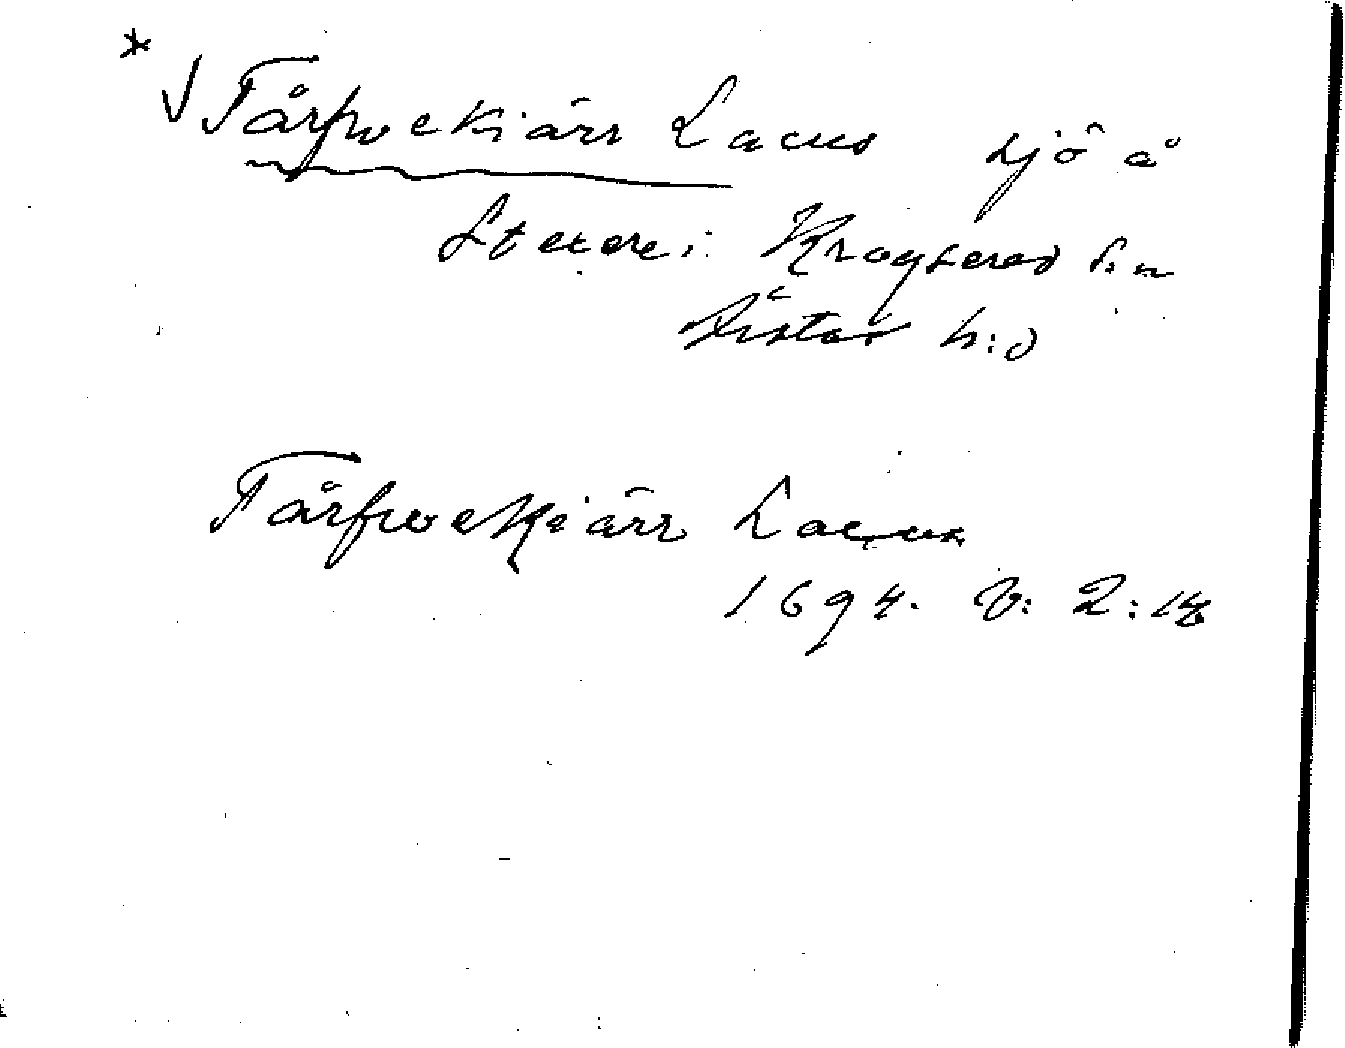 * √ Tårfwekiärr Lacus sjö å
Stexere i Kragstered s:n
Vista h:d
Tårfwekiärr Lacus
1694. V: 2:18